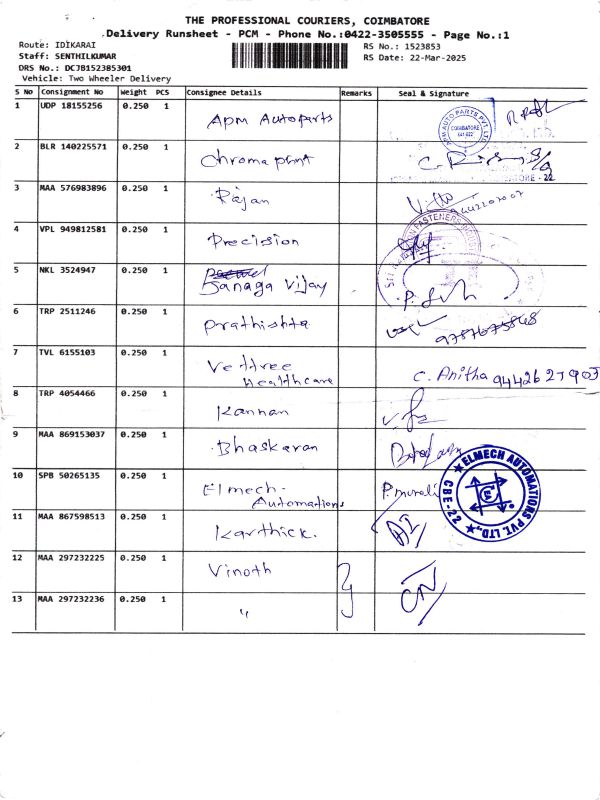 THE PROFESSIONAL COURIERS, COIMBATORE
Delivery Runsheet - PCM - Phone No.:0422-3505555 - Page No.:1
Route: IDIKARAI RS No.: 1523853
Staff: SENTHILKUMAR RS Date: 22-Mar-2025
DRS No.: DCJB152385301
Vehicle: Two Wheeler Delivery
S No Consignment No Weight PCS Consignee Details Remarks Seal & Signature
1 UDP 18155256 0.250 1 Apm Autoparts
APM AUTO PARTS PVT. LTD. COIMBATORE 641 022
2 BLR 140225571 0.250 1 Chromaprint
3 MAA 576983896 0.250 1 Rajan
4 VPL 949812581 0.250 1 Precision
5 NKL 3524947 0.250 1 Janaga Vijay
6 TRP 2511246 0.250 1 Prathishta
7 TVL 6155103 0.250 1 Vettree
Healthcare C. Anitha 9442627903
8 TRP 4054466 0.250 1 Kannan
9 MAA 869153037 0.250 1 Bhaskaran
10 SPB 50265135 0.250 1 Elmech-
Automations P. murali
ELMECH AUTOMATIONS PVT. LTD., CBE-22
11 MAA 867598513 0.250 1 Karthick.
12 MAA 297232225 0.250 1 Vinoth
13 MAA 297232236 0.250 1 "